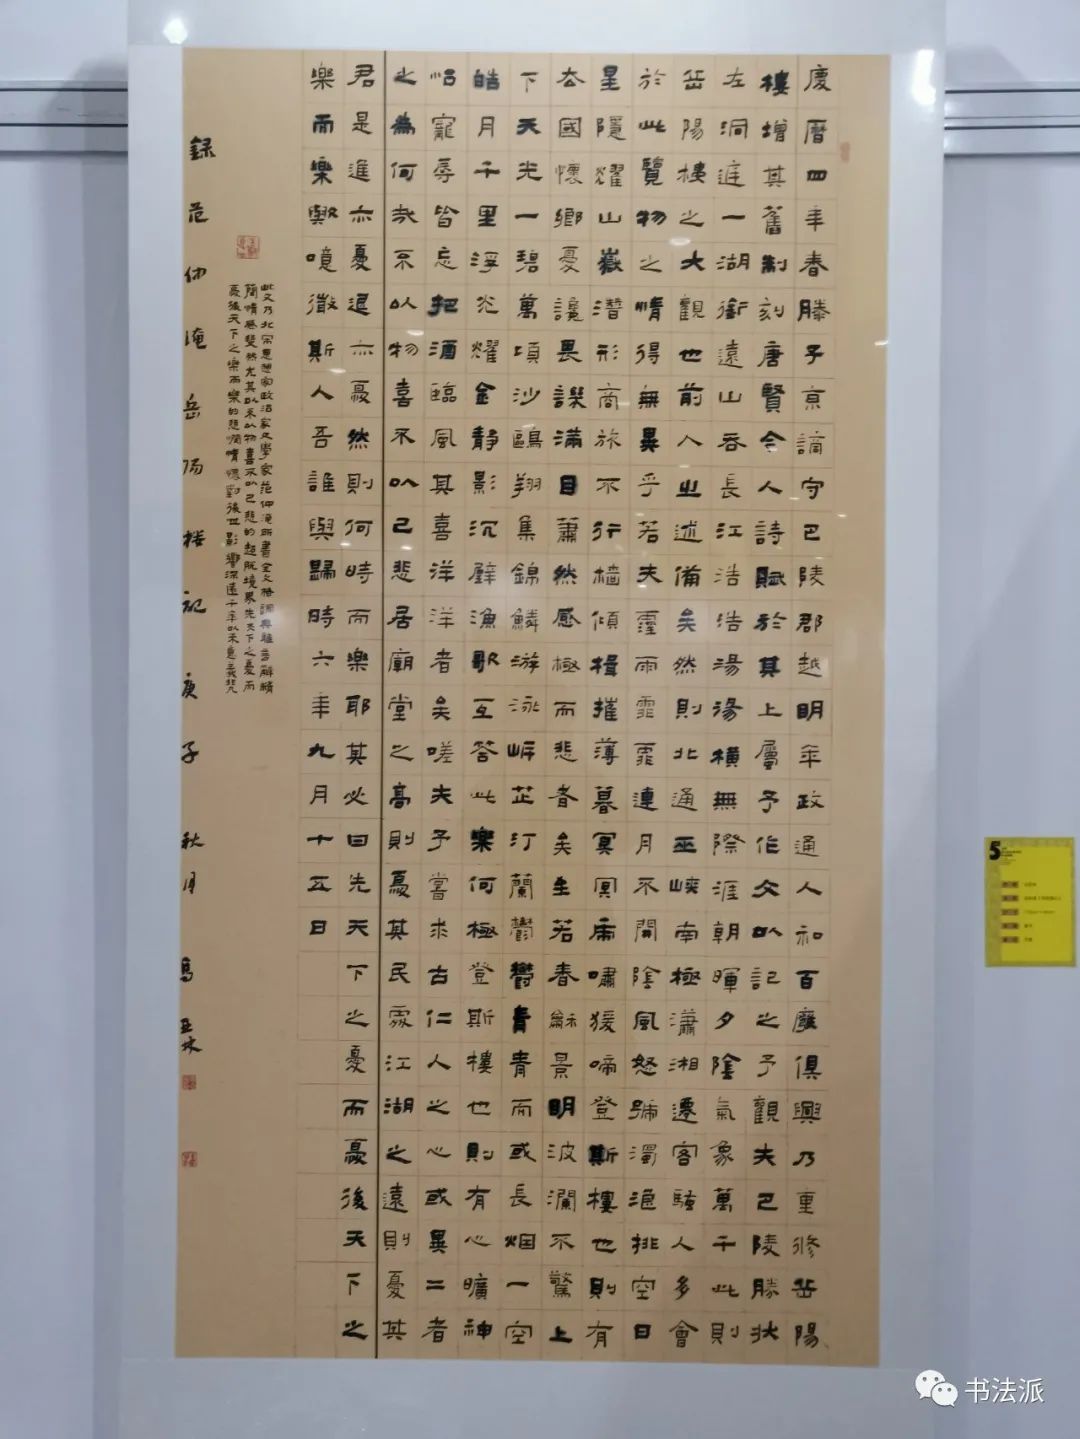 慶曆四年春滕子京謫守巴陵郡越明年政通人和百廢俱興乃重修岳陽
樓增其舊制刻唐賢今人詩賦於其上屬予作文以記之予觀夫巴陵勝狀
在洞庭一湖銜遠山吞長江浩浩湯湯橫無際涯朝暉夕陰氣象萬千此則
岳陽樓之大觀也前人之述備矣然則北通巫峽南極瀟湘遷客騷人多會
於此覽物之情得無異乎若夫霪雨霏霏連月不開陰風怒號濁浪排空日
星隱耀山嶽潛形商旅不行檣傾楫摧薄暮冥冥虎嘯猨啼登斯樓也則有
去國懷鄉憂讒畏譏滿目蕭然感極而悲者矣至若春龢景明波瀾不驚上
下天光一碧萬頃沙鷗翔集錦鱗游泳岸芷汀蘭鬱鬱青青而或長烟一空
皓月千里浮光耀金靜影沉璧漁歌互答此樂何極登斯樓也則有心曠神
怡寵辱皆忘把酒臨風其喜洋洋者矣嗟夫予嘗求古仁人之心或異二者
之為何哉不以物喜不以己悲居廟堂之高則憂其民處江湖之遠則憂其
君是進亦憂退亦憂然則何時而樂耶其必曰先天下之憂而憂後天下之
樂而樂歟噫微斯人吾誰與歸時六年九月十五日
此文乃北宋思想家政治家文學家范仲淹所書全文格調典雅言辭精
簡情感斐然尤其以不以物喜不以己悲的超脫境界先天下之憂而
憂後天下之樂而樂的悲憫情懷對後世影響深遠千年以來意義非凡
錄范仲淹岳陽樓記庚子秋月馮亞林
5
书法派